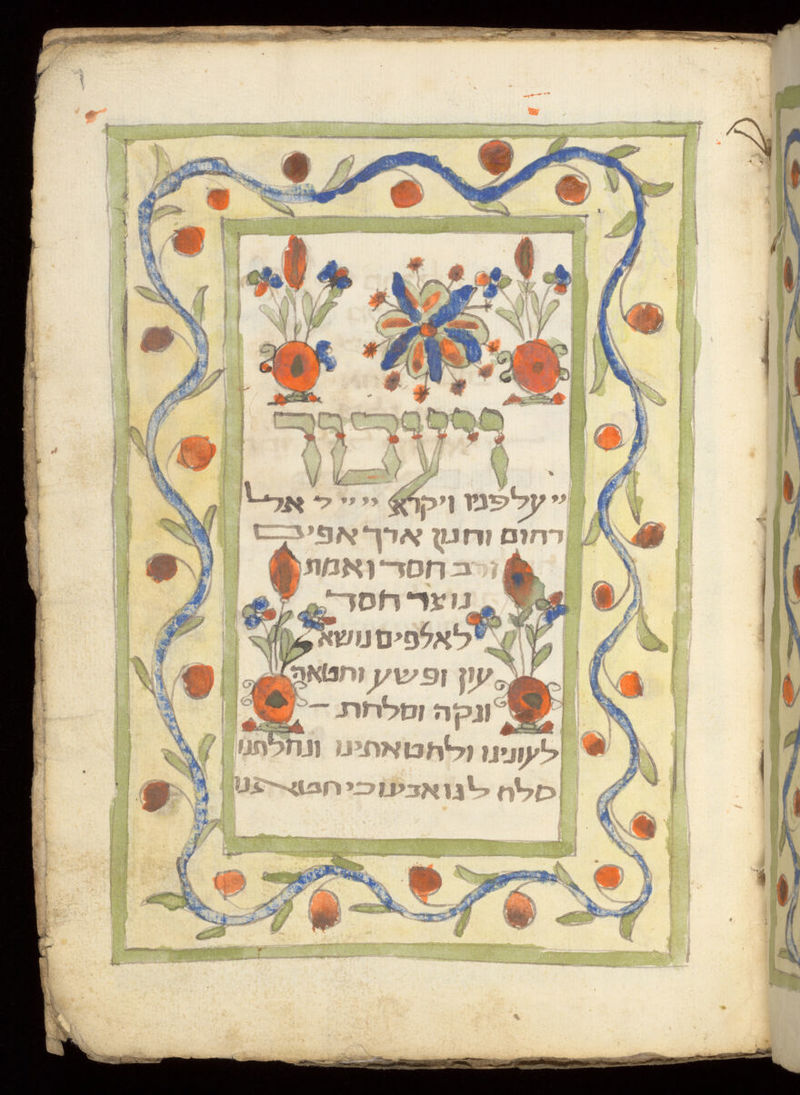 ויעבור
יי על פניו ויקרא יי יי אל
רחום וחנון ארך אפים
ורב חסד ואמת
נוצר חסד
לאלפים נושא
עון ופשע וחטאה
ונקה וסלחת
לעונינו ולחטאתינו ונחלתנו
סלח לנו אבינו כי חטאנו